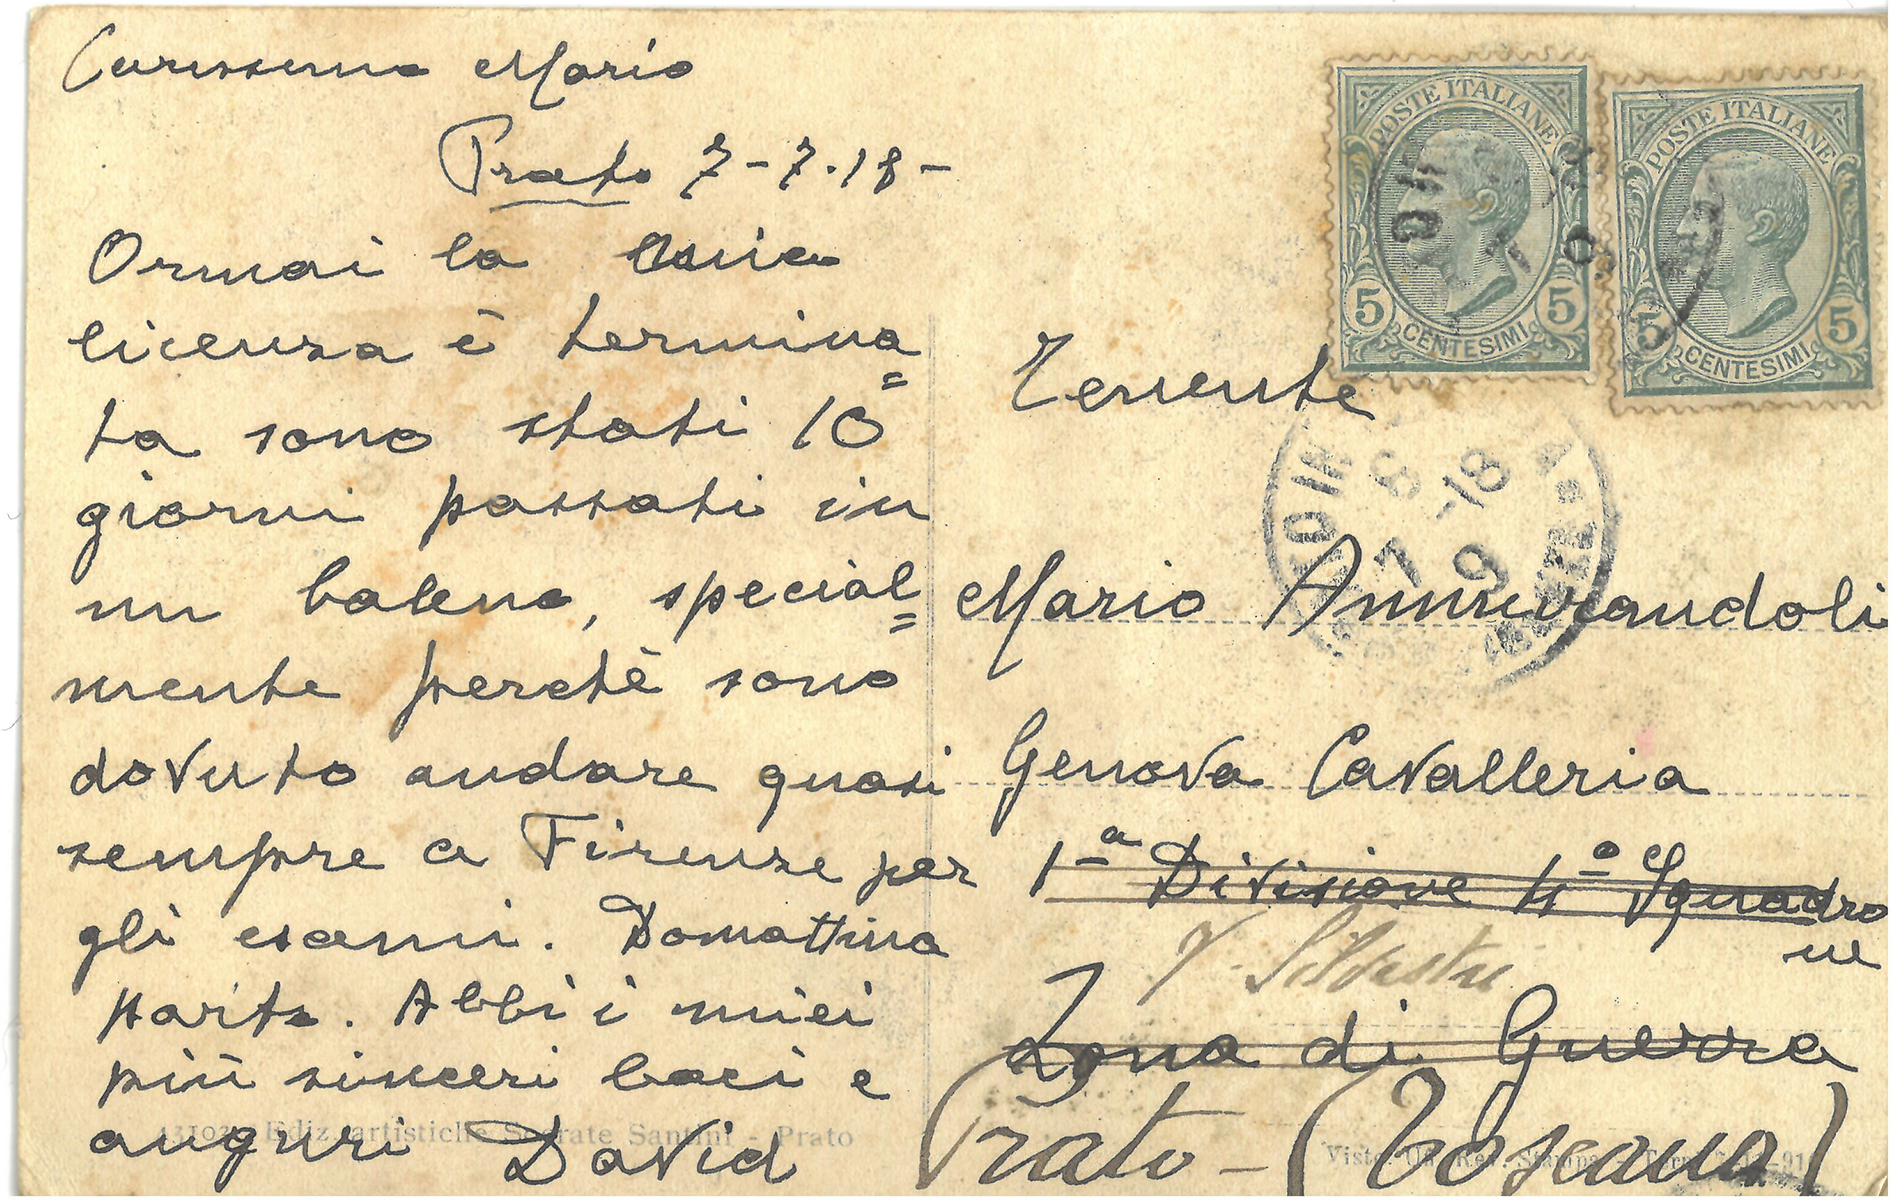 Carissimo Mario
Prato 7-7.18-
Ormai la mia
licenza è termina=
ta sono stati 10
giorni passati in
un baleno, special=
mente perchè sono
dovuto andare quasi
sempre a Firenze per
gli esami. Domattina
parto. Abbi i miei
più sinceri baci e
auguri David
Ediz. artistiche Socrate Santini - Prato
POSTE ITALIANE
5 5
CENTESIMI
POSTE ITALIANE
5 5
CENTESIMI
8
7 -18
9
Tenente
Mario Ammirandoli
Genova Cavalleria
1ª Divisione 4º Squadro
ne
V. Silvestri
Zona di Guerra
Prato - (Toscana)